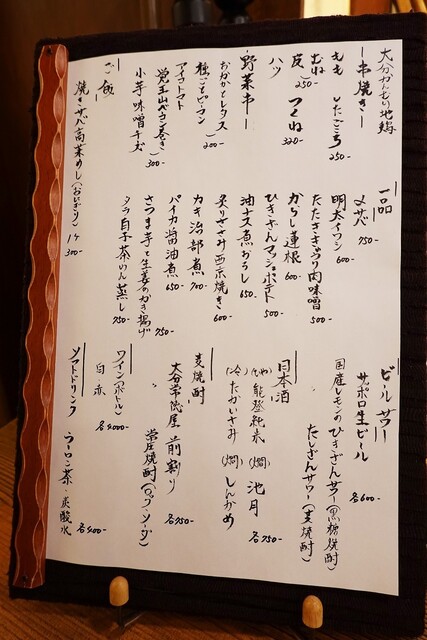 大分かんむり地鶏
―串焼き―
もも したごころ 250-
むね 250-
皮 つくね 320-
ハツ
―野菜串―
おかかとレタス 200-
種ごとピーマン
アイコトマト
覚王山ベーコン巻き
小芋味噌チーズ 300-
ご飯
焼きサバ高菜めし(おにぎり) 1ケ 300-
一品
〆サバ 750-
明太イワシ 600-
たたききゅうり肉味噌 500-
からし蓮根 600-
ひきざんマッシュポテト 500-
油ナス煮おろし 650-
炙りささみ西京焼き 600-
カキ治部煮 700-
パイカ醤油煮 650-
さつま芋と生姜のかき揚げ 750-
タラ白子茶わん蒸し 750-
ビール サワー
サッポロ生ビール 各600-
国産レモンのひきざんサワー(黒糖焼酎)
たしざんサワー(麦焼酎)
日本酒
(ひや) 能登純米 (燗) 池月
(冷) たかいさみ (燗) しんかめ 各750-
麦焼酎
大分常徳屋 前割り 各750-
常圧焼酎(ロック・ソーダ)
ワイン(ボトル)
白 赤 各4000-
ソフトドリンク
ウーロン茶・炭酸水 各400-